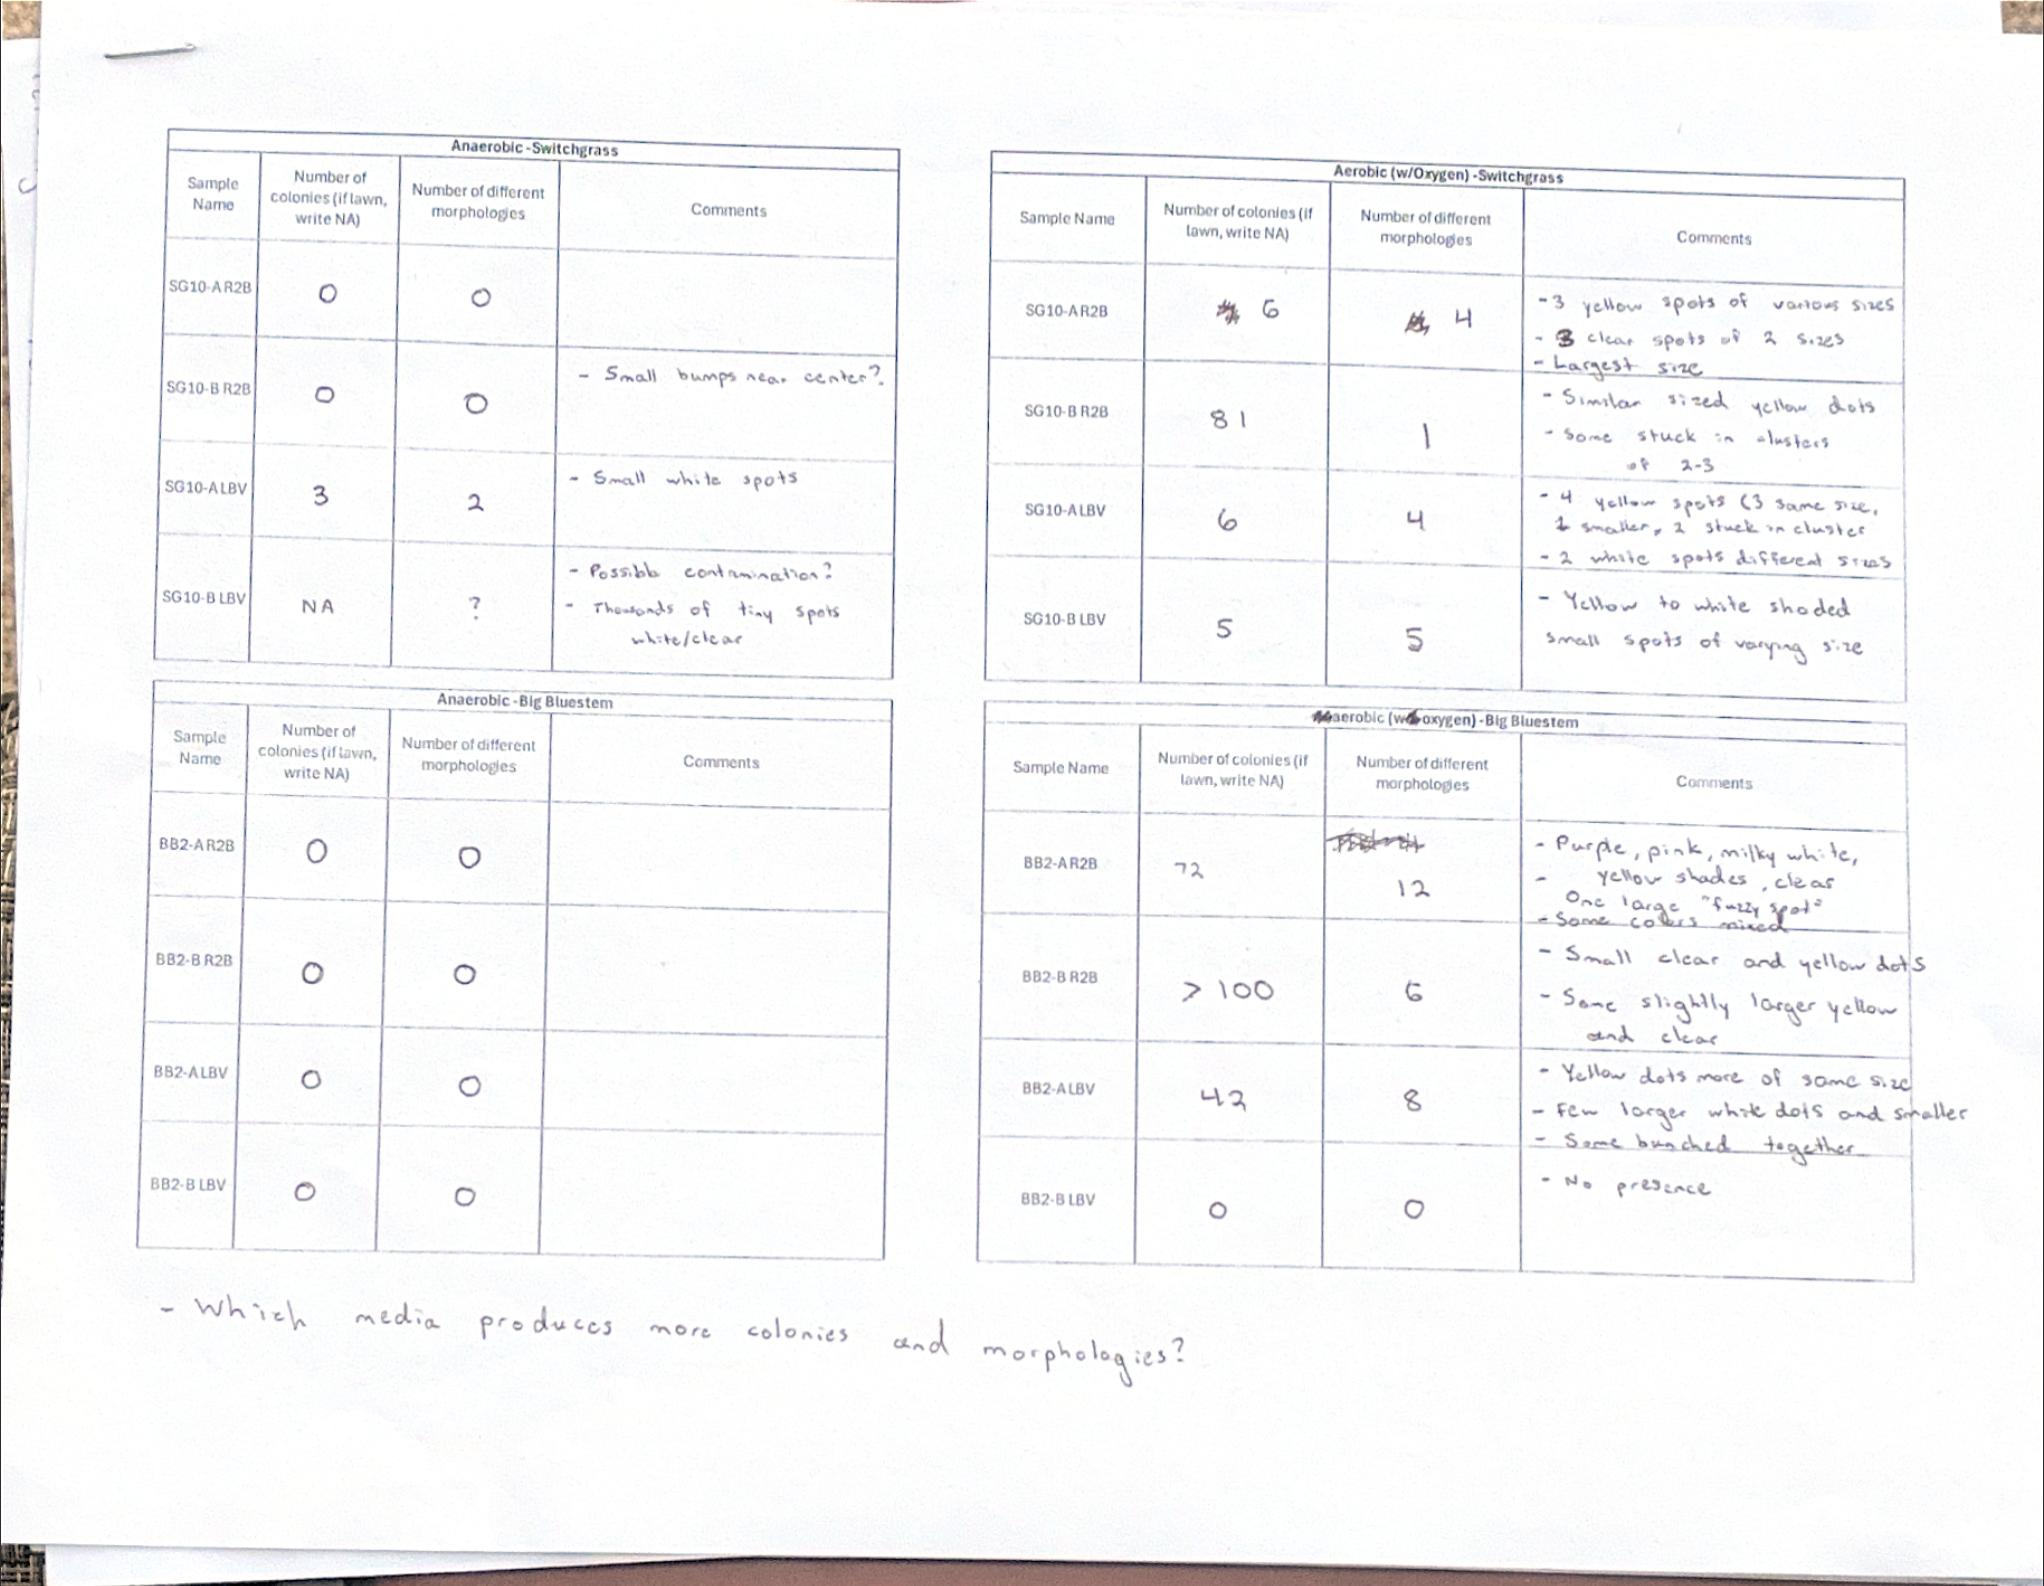 Anaerobic -Switchgrass
Sample Name
Number of colonies (if lawn, write NA)
Number of different morphologies
Comments
SG10-A R2B
0
0
SG10-B R2B
0
0
- Small bumps near center?
SG10-A LBV
3
2
- Small white spots
SG10-B LBV
NA
?
- Possible contamination?
- Thousands of tiny spots
white/clear
Aerobic (w/Oxygen) -Switchgrass
Sample Name
Number of colonies (if lawn, write NA)
Number of different morphologies
Comments
SG10-A R2B
6
4
- 3 yellow spots of various sizes
- 3 clear spots of 2 sizes
- Largest size
SG10-B R2B
81
1
- Similar sized yellow dots
- Some stuck in clusters
of 2-3
SG10-A LBV
6
4
- 4 yellow spots (3 same size,
1 smaller, 2 stuck in cluster
- 2 white spots different sizes
SG10-B LBV
5
5
- Yellow to white shaded
small spots of varying size
Anaerobic -Big Bluestem
Sample Name
Number of colonies (if lawn, write NA)
Number of different morphologies
Comments
BB2-A R2B
0
0
BB2-B R2B
0
0
BB2-A LBV
0
0
BB2-B LBV
0
0
aerobic (w oxygen) -Big Bluestem
Sample Name
Number of colonies (if lawn, write NA)
Number of different morphologies
Comments
BB2-A R2B
72
12
- Purple, pink, milky white,
- yellow shades, clear
One large "fuzzy spot"
- Some colors mixed
BB2-B R2B
> 100
6
- Small clear and yellow dots
- Some slightly larger yellow
and clear
BB2-A LBV
42
8
- Yellow dots more of same size
- Few larger white dots and smaller
- Some bunched together
BB2-B LBV
0
0
- No presence
- Which media produces more colonies and morphologies?